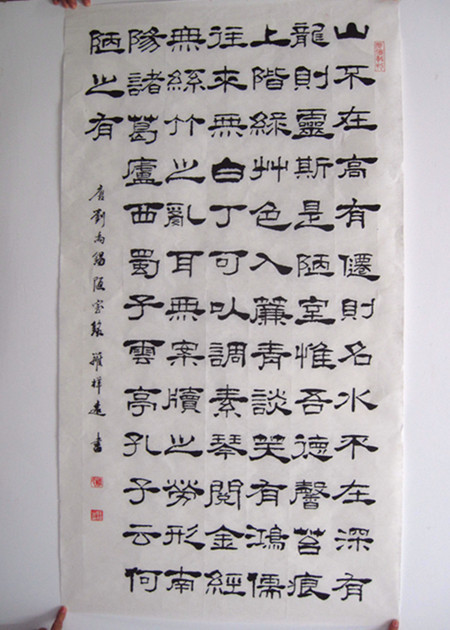 山不在高有僊則名水不在深有
龍則靈斯是陋室惟吾德馨苔痕
上階綠艸色入簾青談笑有鴻儒
往來無白丁可以調素琴閱金經
無絲竹之亂耳無案牘之勞形南
陽諸葛廬西蜀子雲亭孔子云何
陋之有
劉禹錫陋室銘 祥遠書